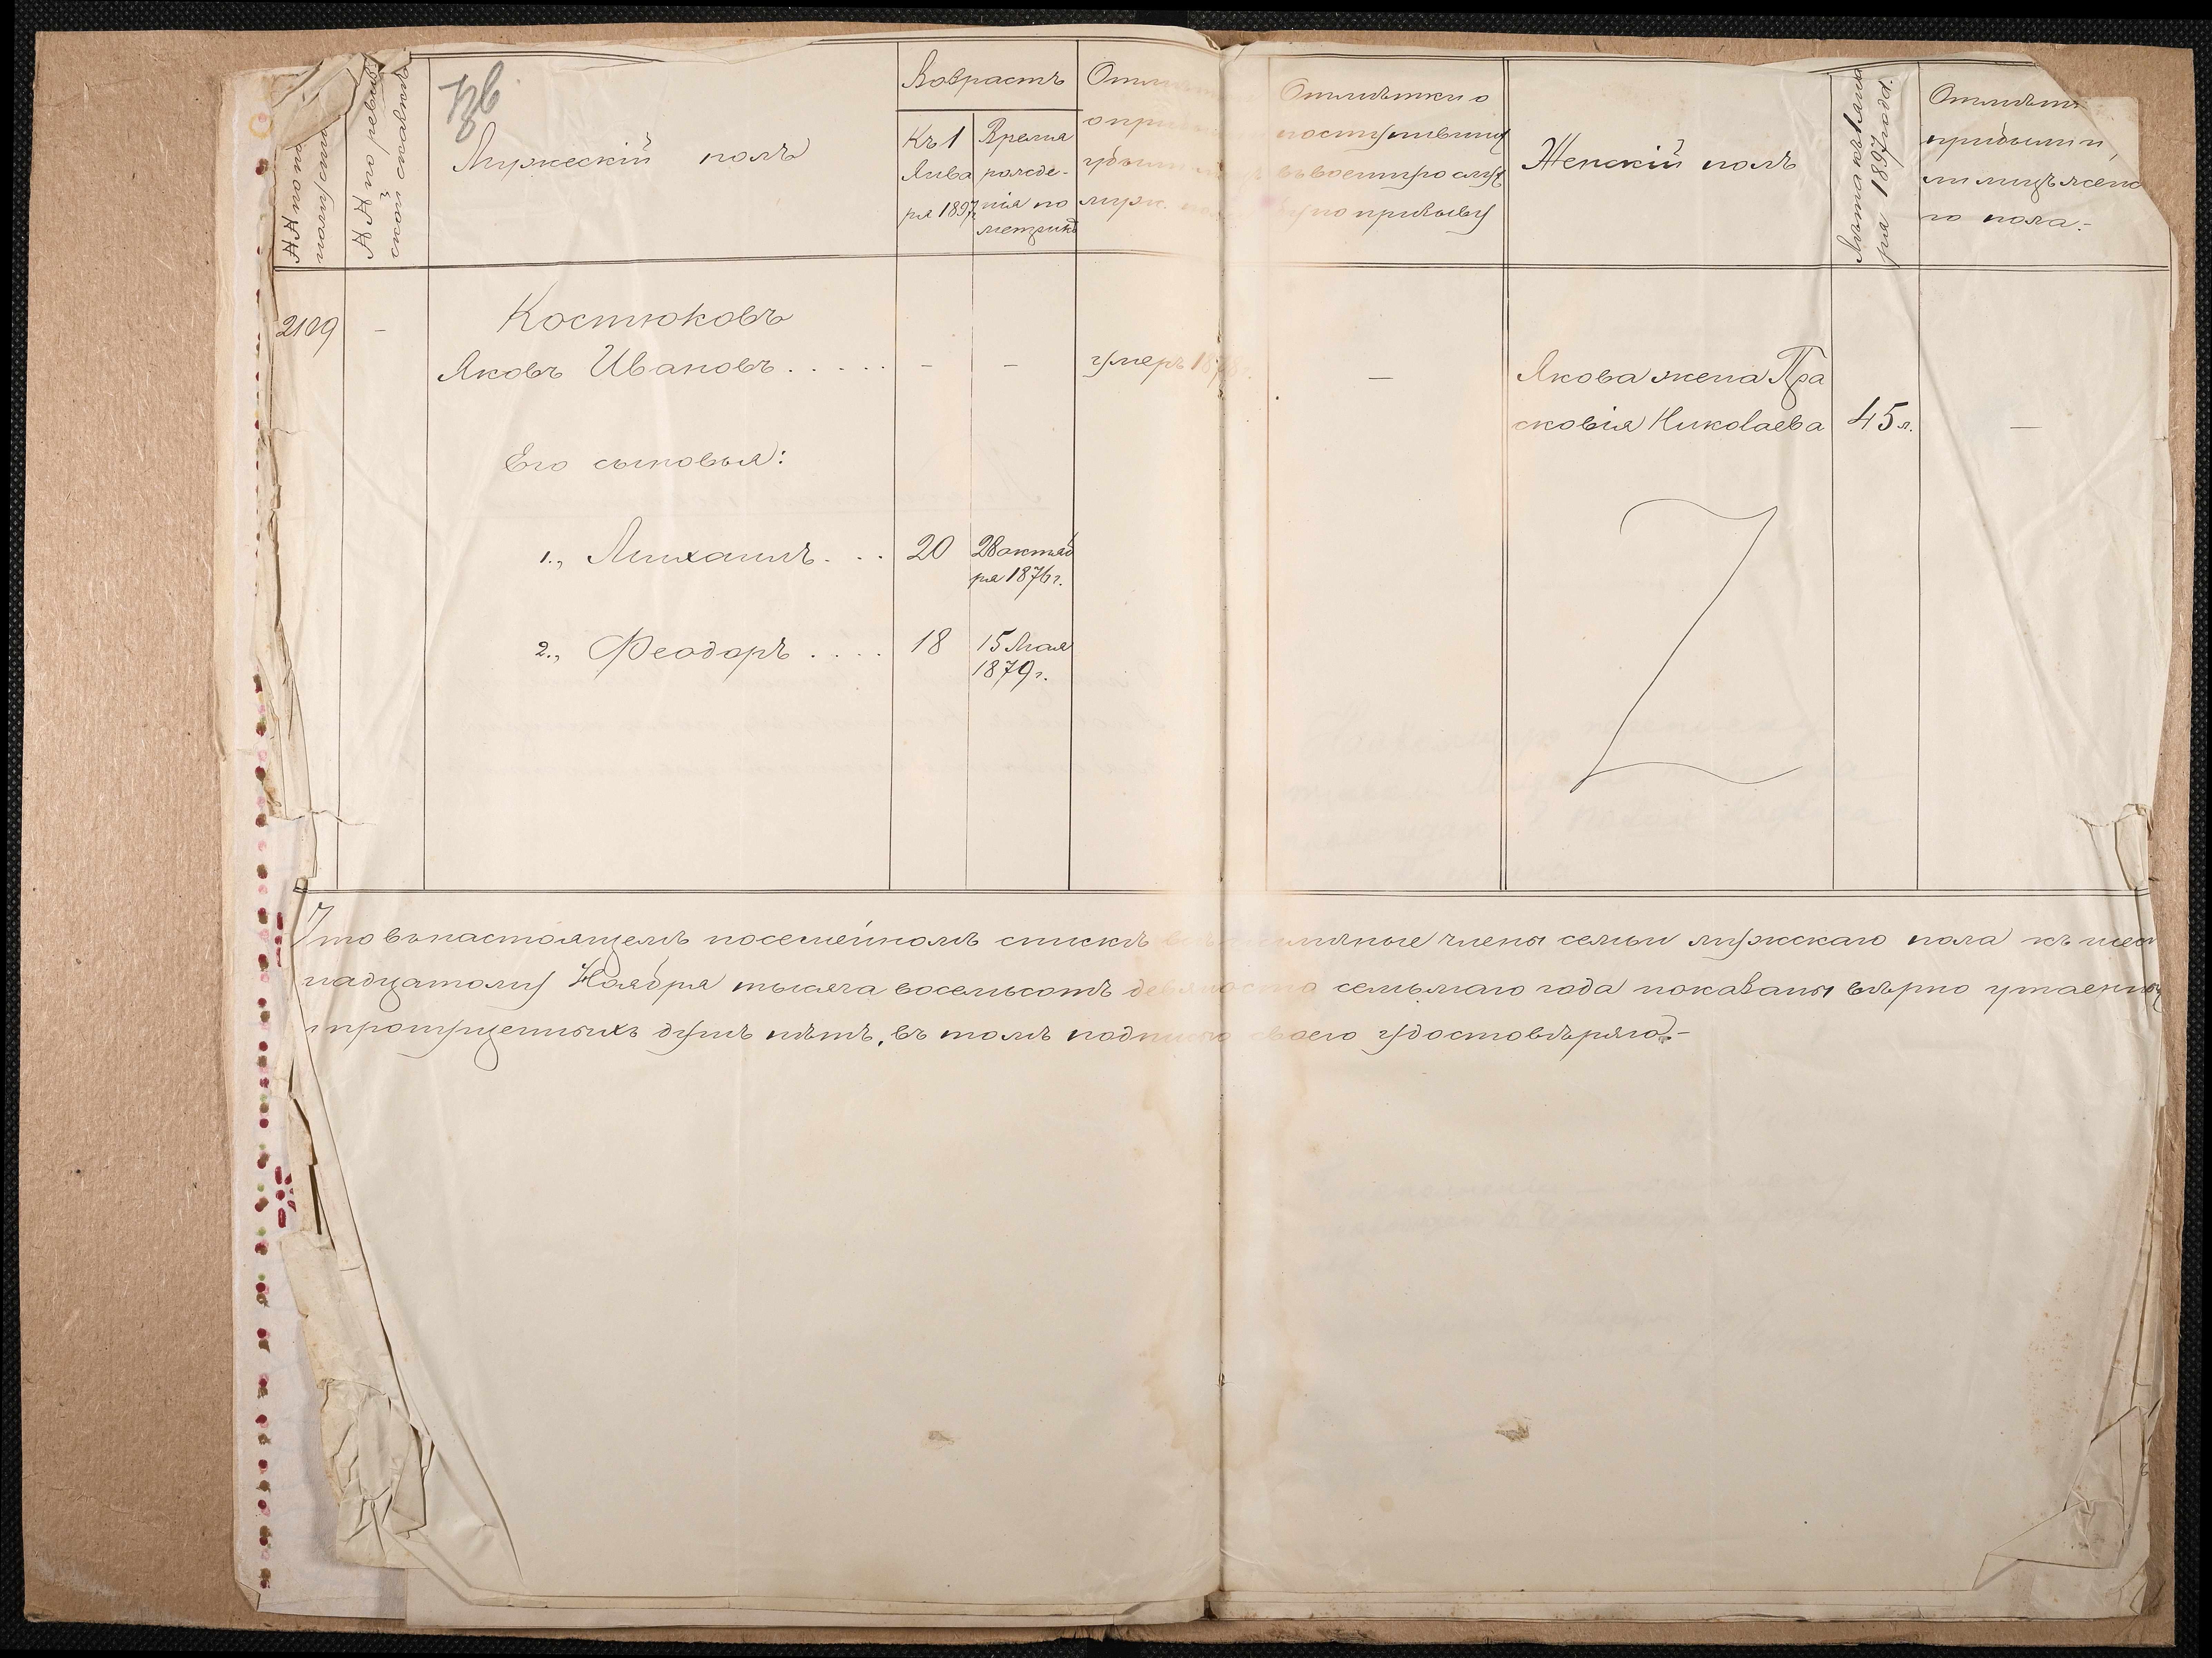 по ре
ской сказкѣ
Мужескій полъ
Возрастъ
Къ 1
Янва
ря 1897 г.
Время
рожде-
нія по
метрикѣ
муж.
Отмѣтки о
поступивши
въ военную служ
бу по призыву
Женскій полъ
Лѣта къ 1 Янва
ря 1897 года.
Отмѣт
прибыли и
ли лицъ женс
го пола.-
2109 -
Костюковъ
Яковъ Ивановъ..... - - умеръ 1878г. -
Якова жена Пра
сковія Николаева 45 л. -
Его сыновья:
1., Михаилъ... 20 28 октяб
ря 1876 г.
2., Феодоръ.... 18 15 Мая
1879 г.
Что въ настоящемъ посемейномъ спискѣ члены семьи мужскаго пола къ шест
надцатому Ноября тысяча восемьсотъ девяносто семьмаго года показаны вѣрно утаенны
и пропущенныхъ душъ нѣтъ, въ томъ подписью своею удостовѣряю.-